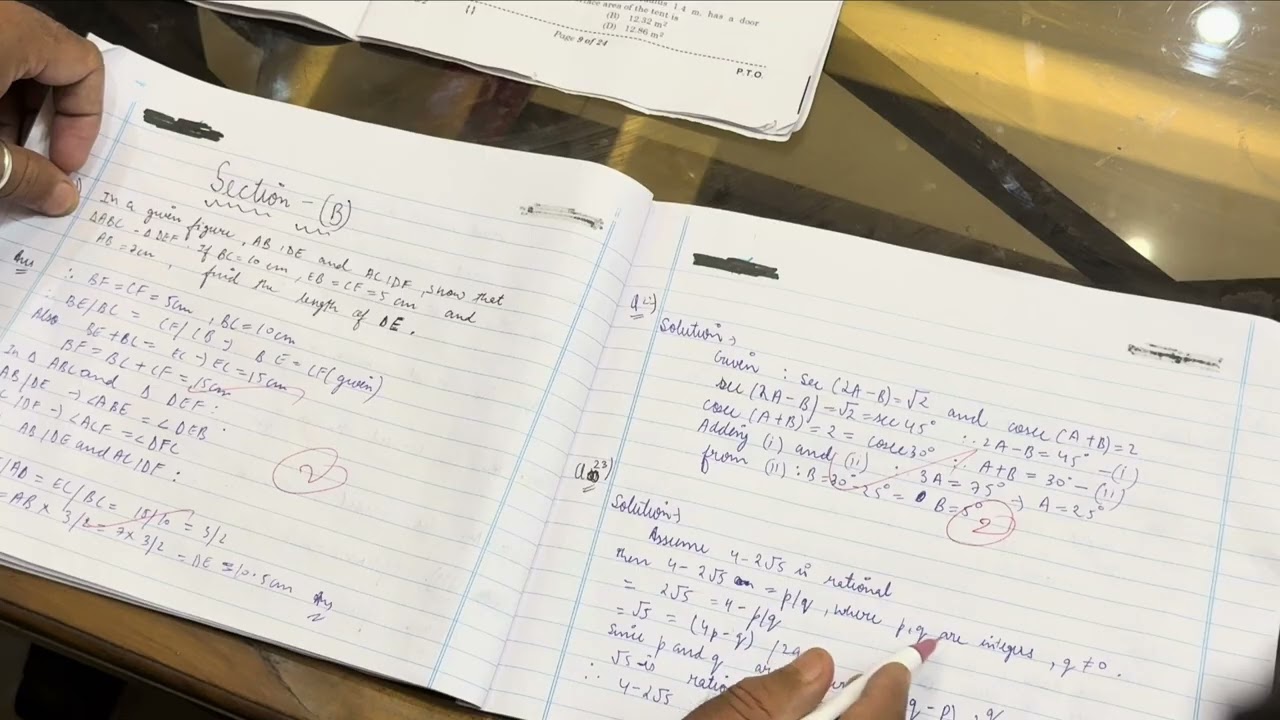 1.4 m. has a door
area of the tent is
(B) 12.32 m²
(D) 12.86 m²
Page 9 of 24
P.T.O.
Section - (B)
In a given figure, AB | DE and AC | DF, show that
ΔABC - ΔDEF. If BC = 10 cm, EB = CF = 5 cm and
AB = 7cm, find the length of DE.
Ans
∴ BF = CF = 5cm, BC = 10cm
∴ BE/BC = CF/CB → BE = CF (given)
Also BE + BC = EC → EC = 15cm
BF = BC + CF = 15cm
In Δ ABC and Δ DEF:
AB/DE → ∠ABE = ∠DEB
/DF → ∠ACF = ∠DFC
AB/DE and AC/DF:
/AB = EC/BC = 15/10 = 3/2
= AB × 3/2 = 7 × 3/2 = DE = 10.5cm Ans
2
Solution:
Given : sec (2A-B) = √2 and cosec (A+B) = 2
sec (2A-B) = √2 = sec 45° ∴ 2A-B = 45° - (i)
cosec (A+B) = 2 = cosec 30° ∴ A+B = 30° - (ii)
Adding (i) and (ii) : 3A = 75° → A = 25°
from (ii) : B = 30° - 25° = B = 5°
2
23)
Solution:
Assume 4-2√5 is rational
then 4-2√5 = p/q, where p, q are integers, q ≠ 0.
= 2√5 = 4 - p/q
= √5 = (4p-q) /2q
Since p and q are
√5 is
∴ 4-2√5